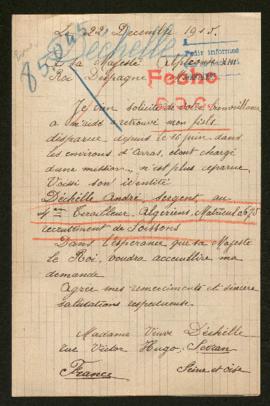 Le 22 Decembre 1915.
85045
Dechelle
Pedir informes
A sa Majesté Alphonse XIII
Roi D'espagne
Fecho
Je viens solicite de votre bienveillance
a m'aidé a retrouvé mon fils
disparue depuis le 16 juin dans
les environs d'Arras, etant chargé
d'une mission, n'est plus reparue
Voissi son identité
Déchelle André, Sergent au
4eme Tirailleur Algeriens, Matricul 675
recrutement de Soissons
Dans l'esperance que sa Majesté
le Roi, voudra acceuillire ma
demande
Agree mes remerciments et sincere
salutations respectueuse.
Madame Veuve Déchelle
rue Victor Hugo, Sevran
France Seine et oise